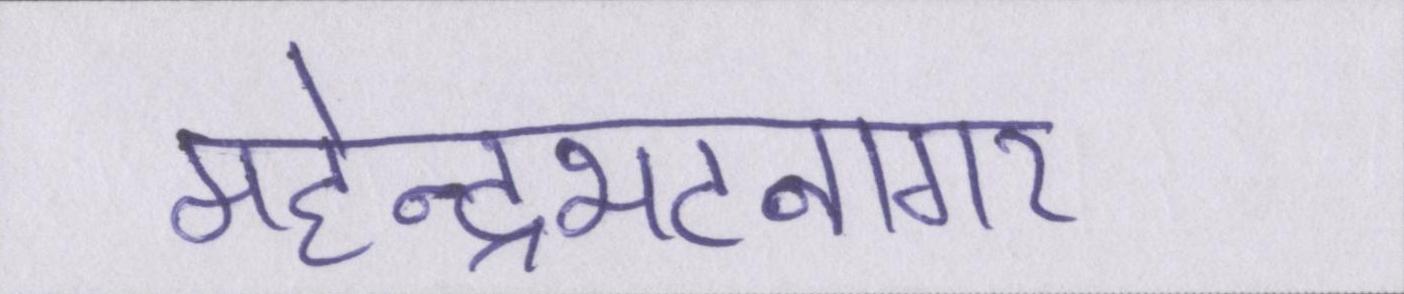 महेन्द्रभटनागर